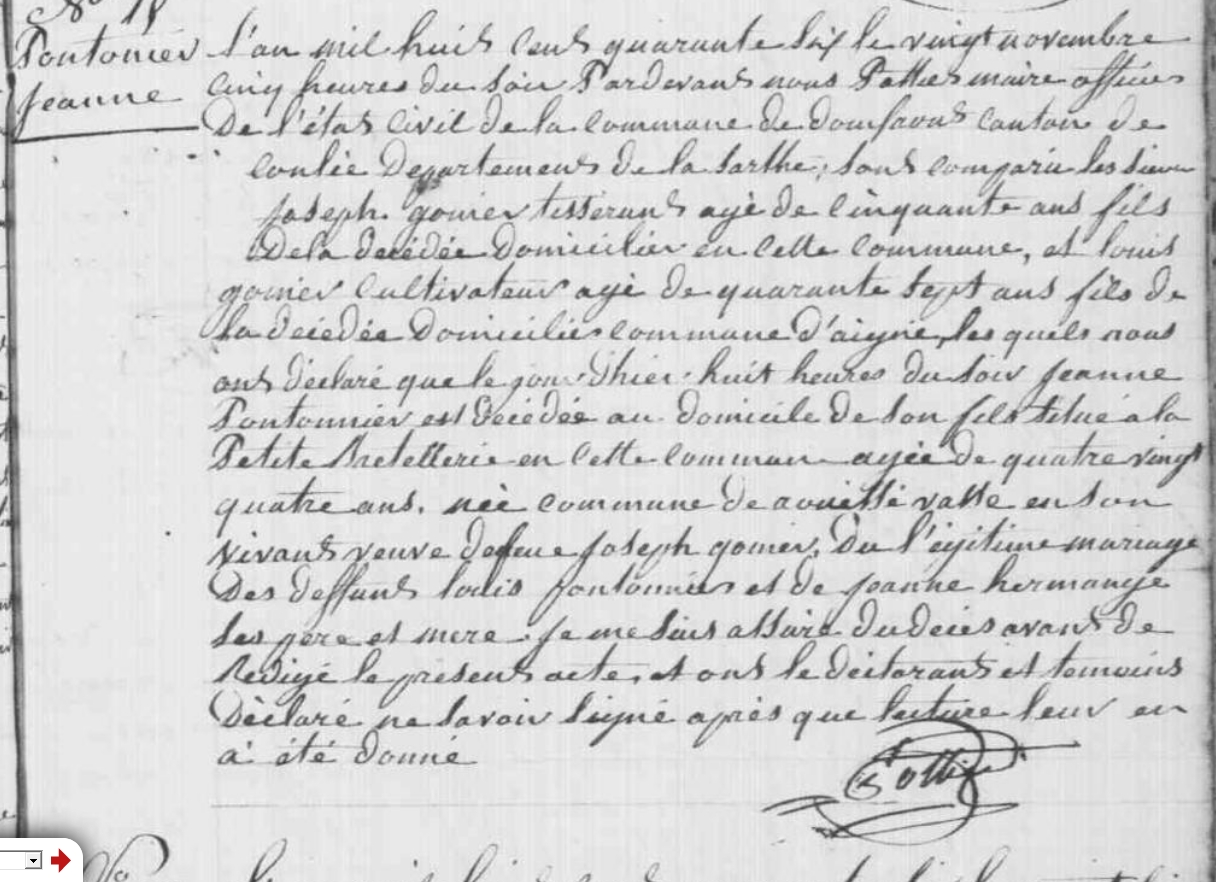 No 18
Pontonier
Jeanne
L'an mil huit cent quarante six le vingt novembre
cinq heures du soir Pardevant nous Pottier maire officier
De l'état civil de la commune de domfront canton de
conlie Departement de la Sarthe, sont comparu les sieurs
Joseph gomer tisserant agé de cinquante ans fils
De la decédée Domicilier en cette commune, et louis
gomer Cultivateur agé de quarante sept ans fils de
la decédée Domicilier commune d'aigne, les quels nous
ont déclaré que le jour d'hier huit heures du soir Jeanne
Pontonnier est Decédée au domicile de son fils situé a la
Petite Bretellerie en cette commun agée de quatre vingt
quatre ans, née commune de rouéssé vasse en son
vivant veuve de feue Joseph gomer, Du l'egitime mariage
Des deffunt louis pontonnier et de jeanne hermange
ses père et mere. Je me suis assuré du deces avant de
Redigé le présent acte, et ont le déclarant et temoins
Déclaré ne savoir signé après que lecture leur en
a été donné
Pottier
No